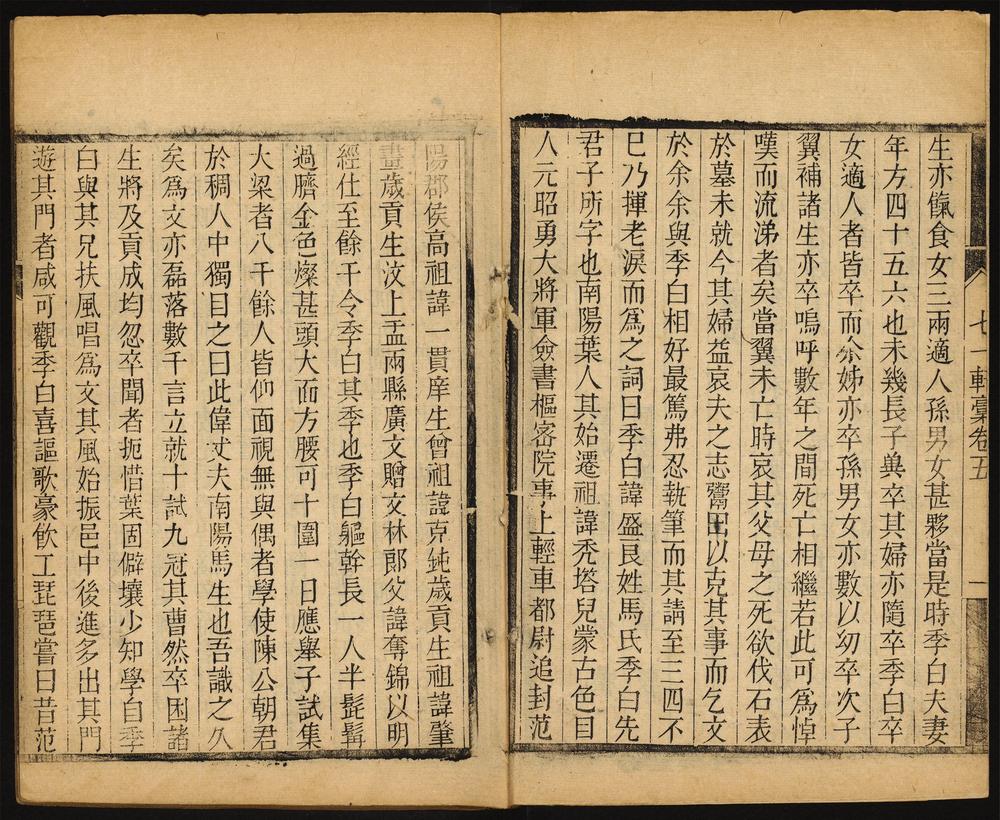 七一軒稾卷五
一
生亦餼食女三兩適人孫男女甚夥當是時季白夫妻
年方四十五六也未幾長子㒷卒其婦亦隨卒季白卒
女適人者皆卒而余姊亦卒孫男女亦數以㓜卒次子
翼補諸生亦卒嗚呼數年之間死亡相繼若此可爲悼
嘆而流涕者矣當翼未亡時哀其父母之死欲伐石表
於墓未就今其婦益哀夫之志鬻田以克其事而乞文
於余余與季白相好最篤弗忍執筆而其請至三四不
巳乃揮老淚而爲之詞曰季白諱盛良姓馬氏季白先
君子所字也南陽葉人其始遷祖諱禿塔兒蒙古色目
人元昭勇大將軍僉書樞密院事上輕車都尉追封范
陽郡侯高祖諱一貫庠生曾祖諱克鈍歲貢生祖諱肇
畫歲貢生汶上盂兩縣廣文贈文林郎父諱奪錦以明
經仕至餘干令季白其季也季白軀幹長一人半髭髯
過臍金色燦甚頭大而方腰可十圍一日應舉子試集
大梁者八千餘人皆仰面視無與偶者學使陳公朝君
於稠人中獨目之曰此偉丈夫南陽馬生也吾識之久
矣爲文亦磊落數千言立就十試九冠其曹然卒困諸
生將及貢成均忽卒聞者扼惜葉固僻壤少知學自季
白與其兄扶風唱爲文其風始振邑中後進多出其門
遊其門者咸可觀季白喜謳歌豪飲工琵琶嘗曰昔范